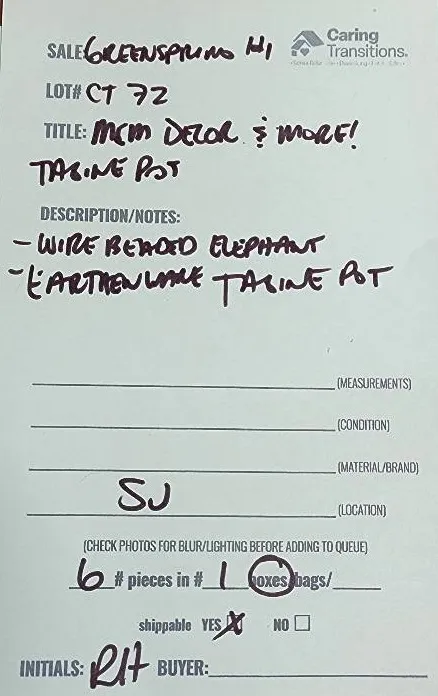 SALE: GREENSPRING H1
Caring
Transitions®
LOT# CT 72
TITLE: MCM DECOR & MORE!
TAGINE POT
DESCRIPTION/NOTES:
- WIRE BEADED ELEPHANT
- EARTHENWARE TAGINE POT
(MEASUREMENTS)
(CONDITION)
(MATERIAL/BRAND)
SJ (LOCATION)
(CHECK PHOTOS FOR BLUR/LIGHTING BEFORE ADDING TO QUEUE)
6 # pieces in # 1 boxes/bags/
shippable YES X NO
INITIALS: RH BUYER: